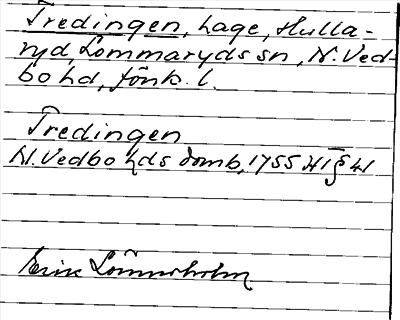 Tredingen, hage, Hulla-
ryd, Lommaryds sn, N. Ved-
bo hd, Jönk. l.
Tredingen
N. Vedbo hds domb, 1755 HT § 41
Erik Lönnerholm